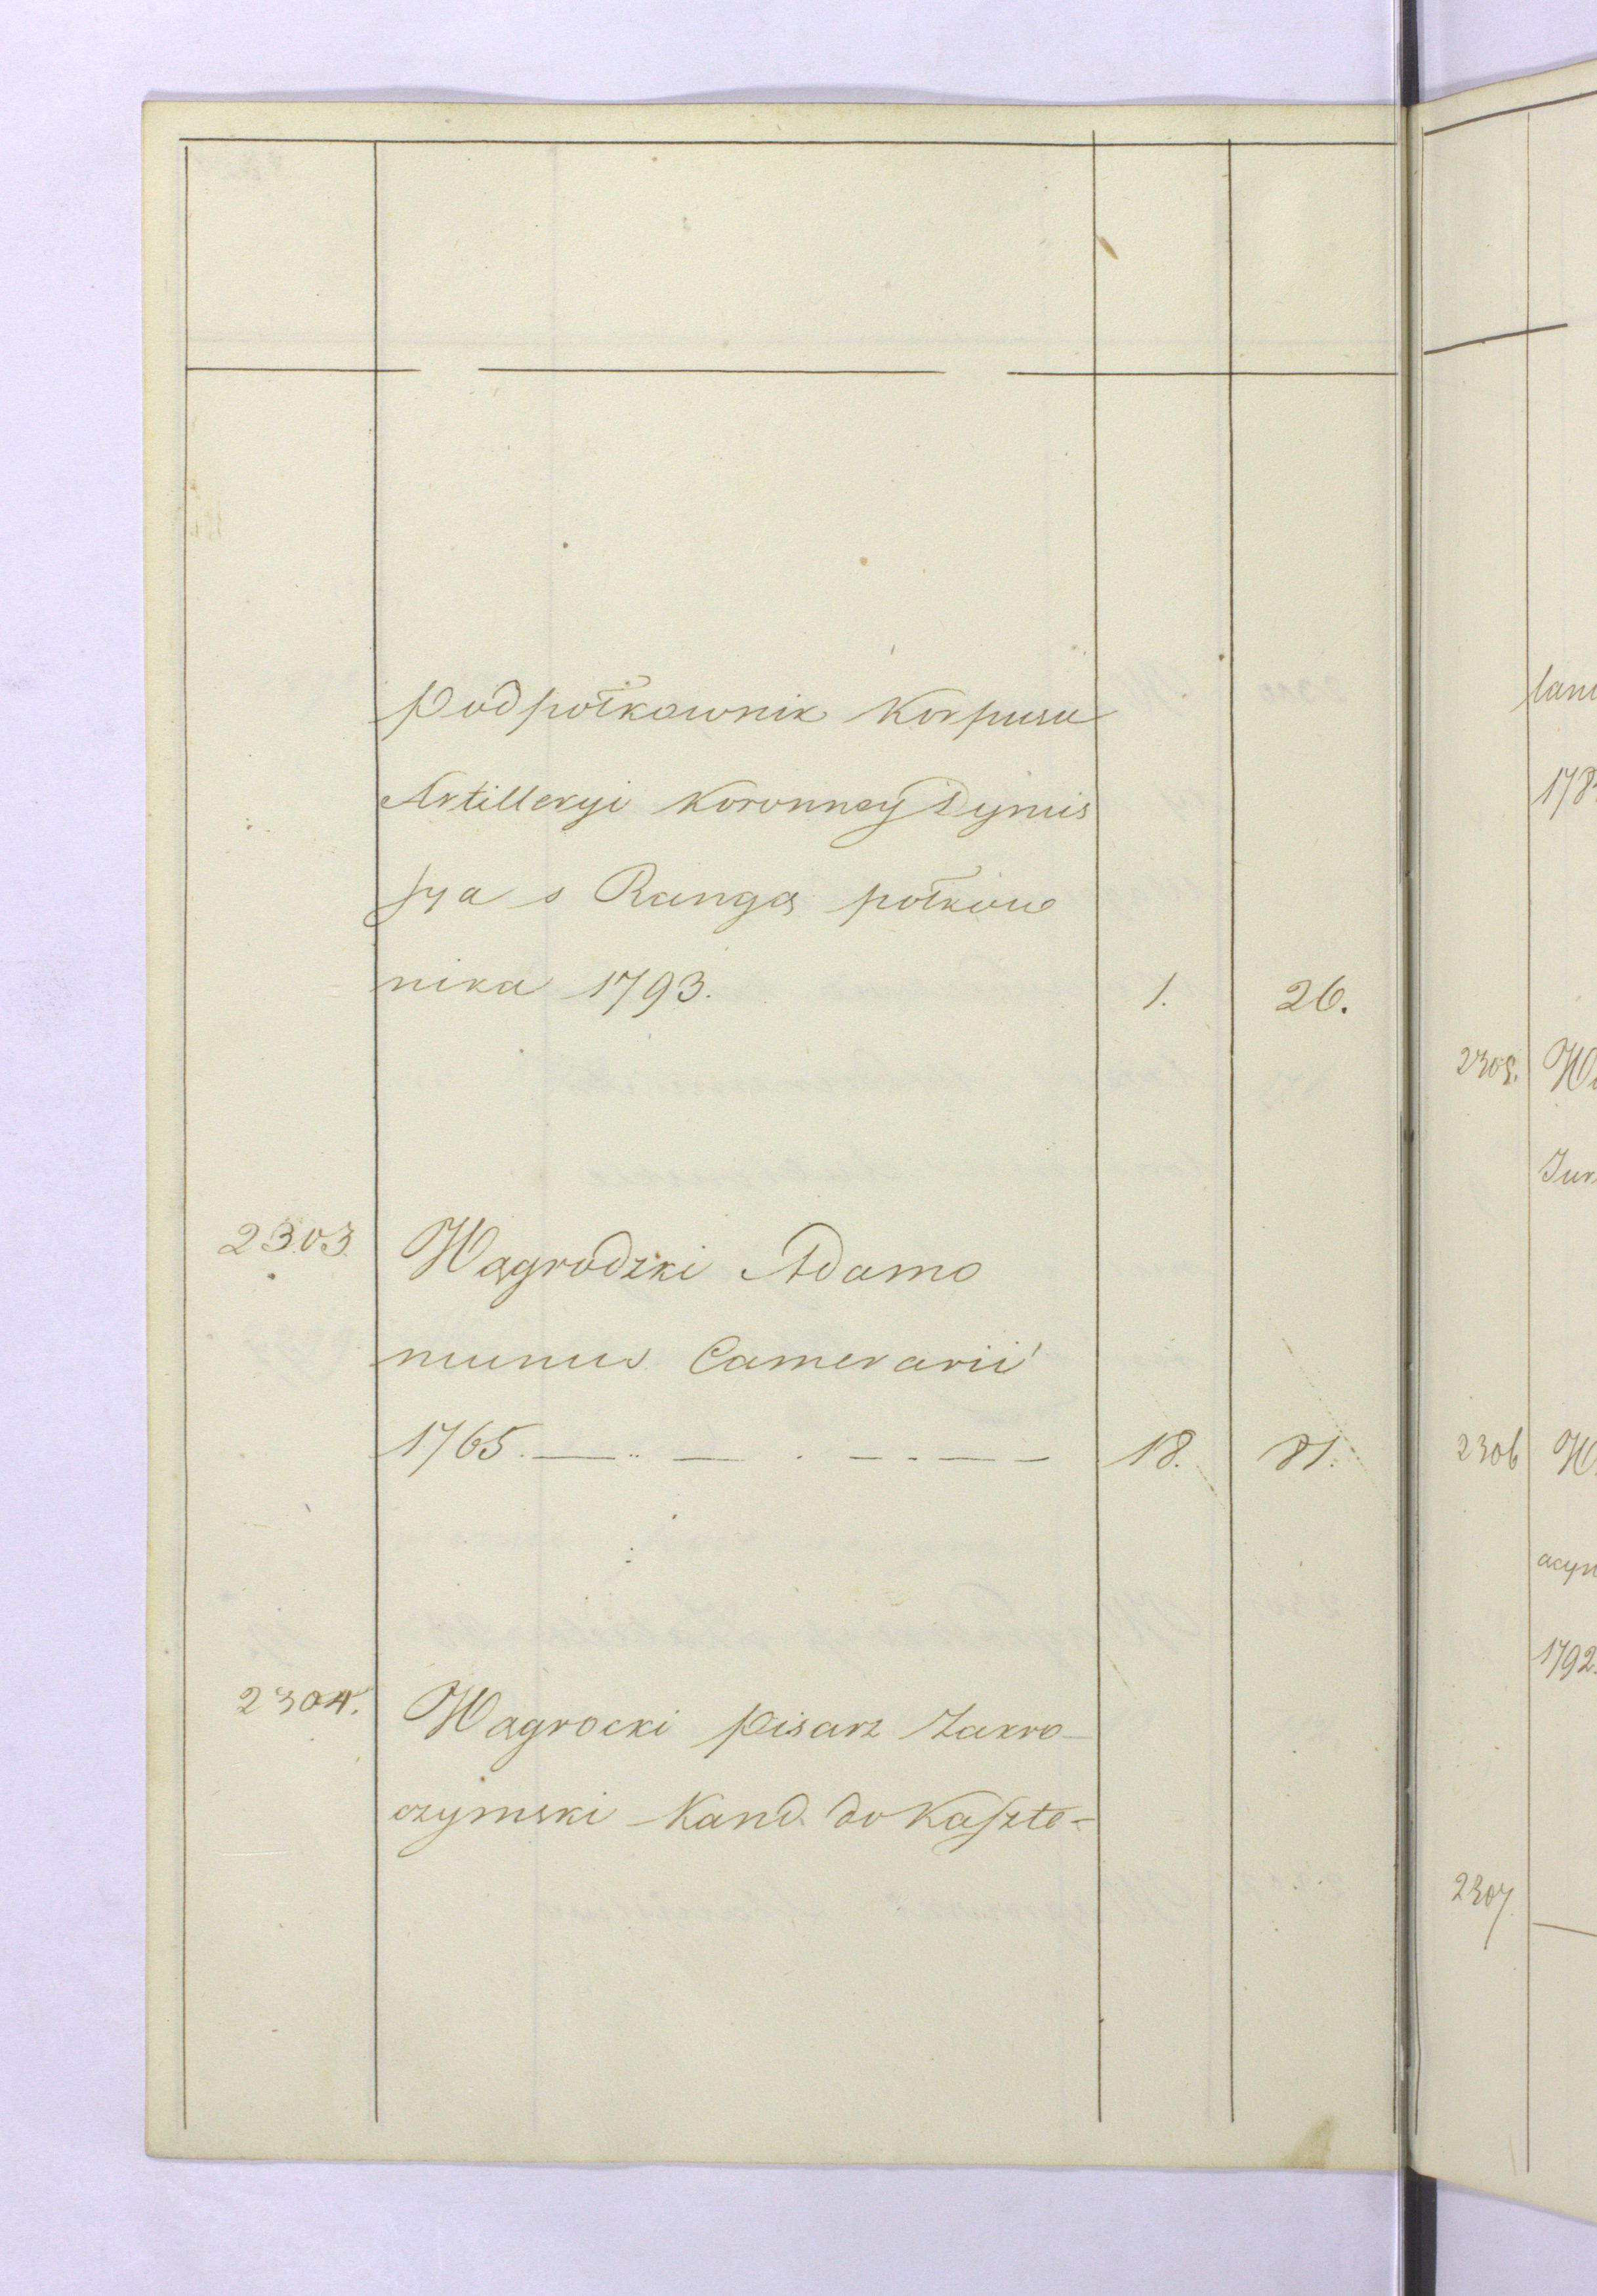 Podpółkownik Korpusu
Artilleryi Koronney Dymis
sya s Rangą połkow
nika 1793. 1. 26.
2303. Wągrodzki Adamo
munus Camerarii
1765. — — — — — 18. 81.
2304. Wągrocki Pisarz Zakro-
czymski Kand. do Kaszte-
178
2305.
2306
1792.
2307